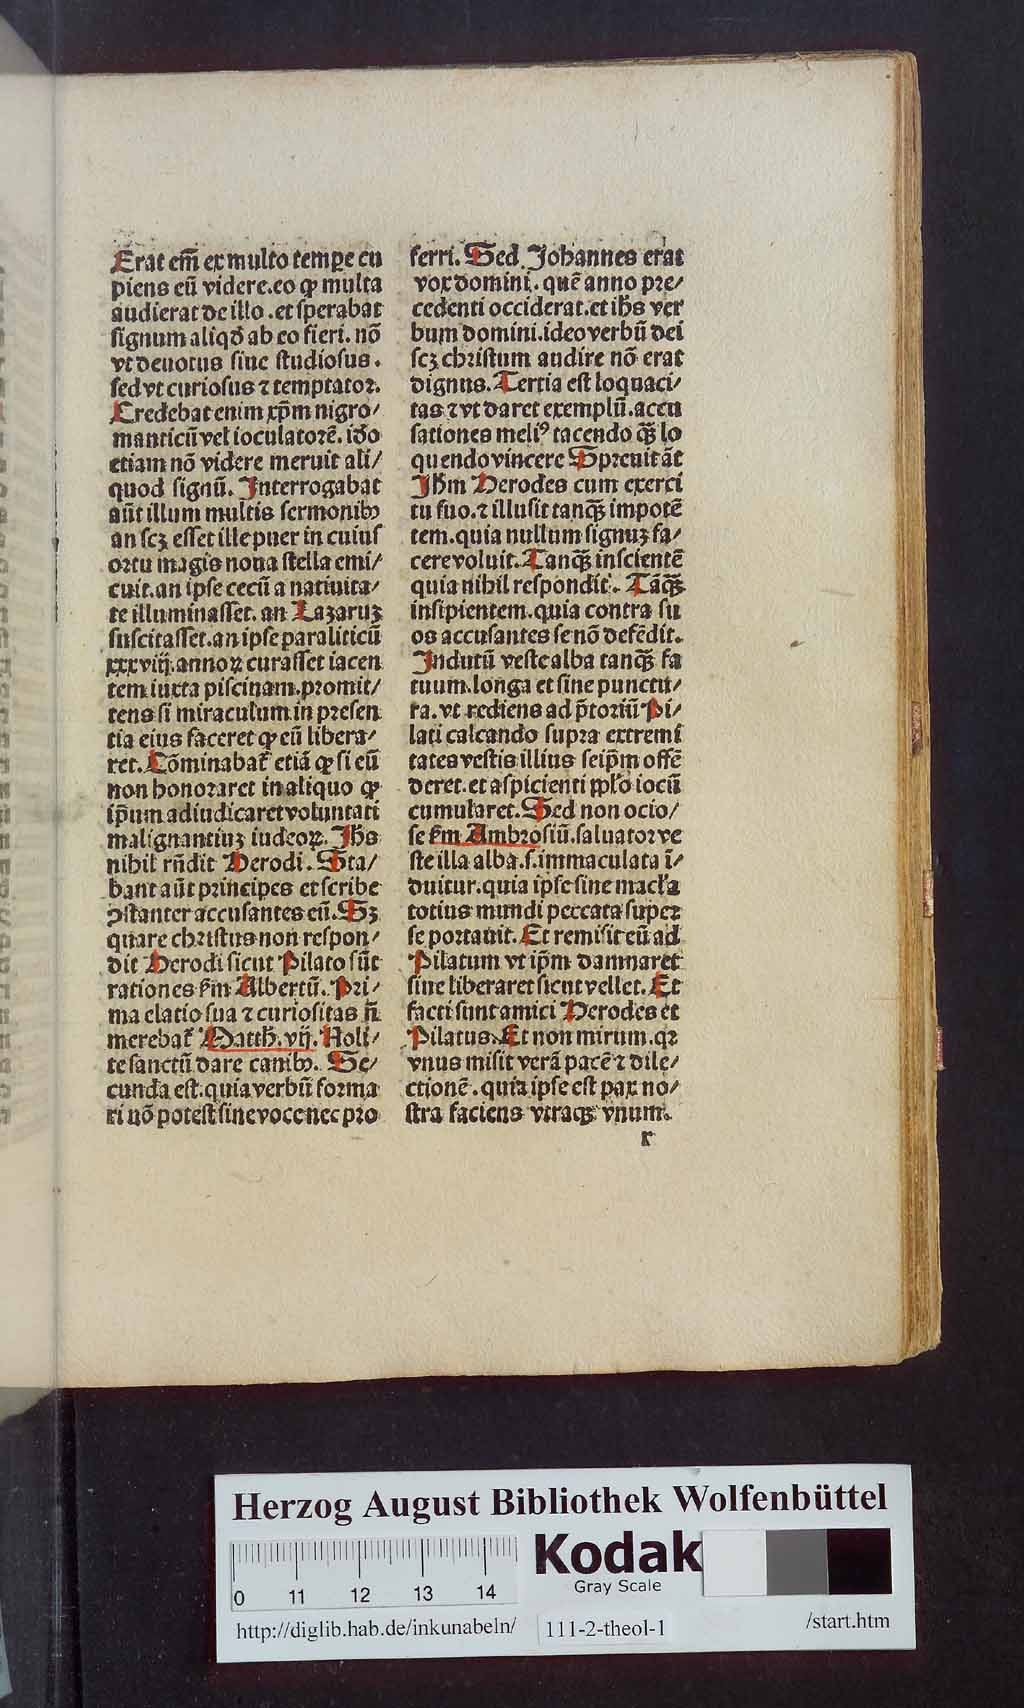 Erat em̄ ex multo tempe cu
piens eū videre.eo ꝙ multa
audierat de illo.et sperabat
signum aliqđ ab eo fieri.nō
vt deuotus siue studiosus.
sed vt curiosus ⁊ temptator.
Credebat enim xp̄m nigro/
manticū vel ioculatorē.iđo
etiam nō videre meruit ali/
quod signū. Interrogabat
aūt illum multis sermonibꝰ
an scꝫ esset ille puer in cuius
ortu magis noua stella emi/
cuit.an ipse cecū a natiuita/
te illuminasset.an Lazaruꝫ
suscitasset.an ipse paraliticū
xxxviij.annoꝝ curasset iacen
tem iuxta piscinam.promit/
tens si miraculum in presen
tia eius faceret ꝙ eū libera/
ret. Cōminabat̄ etiā ꝙ si eū
non honoraret in aliquo ꝙ
ip̄um adiudicaret voluntati
malignantiuꝫ iudeoꝝ. Ihs
nihil rn̄dit Herodi. Sta/
bant aūt principes et scribe
ꝯstanter accusantes eū. Sꝫ
quare christus non respon/
dit Herodi sicut Pilato sūt
rationes ẜm Albertū. Pri/
ma elatio sua ⁊ curiositas n̄
merebat̄ Matth. vij. Noli/
te sanctū dare canibꝰ. Se/
cunda est.quia verbū forma
ri nō potest sine voce nec pro
ferri. Sed Johannes erat
vox domini.quē anno pre/
cedenti occiderat.et ih̄s ver
bum domini.ideo verbū dei
scꝫ christum audire nō erat
dignus. Tertia est loquaci/
tas ⁊ vt daret exemplū.accu
sationes meliꝰ tacendo ꝗ̄ lo
quendo vincere Spreuit āt
Ihm Herodes cum exerci
tu suo.⁊ illusit tanꝗ̄ impotē
tem.quia nullum signuꝫ fa/
cere voluit. Tanꝗ̄ inscientē
quia nihil respondit. Tāꝗ̄
insipientem.quia contra su
os accusantes se nō defēdit.
Indutū veste alba tanꝗ̄ fa
tuum.longa et sine punctu/
ra.vt rediens ad p̄toriū Pi/
lati calcando supra extremi
tates vestis illius seip̄m offē
deret.et aspicienti pp̄lo iocū
cumularet. Sed non ocio/
se ẜm Ambrosiū.saluator ve
ste illa alba.s.immaculata ī/
duitur.quia ipse sine macl̄a
totius mundi peccata super
se portauit. Et remisit eū ad
Pilatum vt ip̄m damnaret
siue liberaret sicut vellet. Et
facti sunt amici Herodes et
Pilatus. Et non mirum.qꝛ
vnus misit verā pacē ⁊ dile/
ctionē.quia ipse est pax no/
stra faciens vtraqꝫ vnum.
r
Herzog August Bibliothek Wolfenbüttel
Kodak
Gray Scale
0 11 12 13 14
http://diglib.hab.de/inkunabeln/ 111-2-theol-1 /start.htm